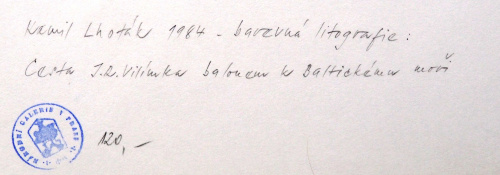 Kamil Lhoták 1984 - barevná litografie:
Cesta J.R.Vilímka balonem k Baltickému moři
NÁRODNÍ GALERIE V PRAZE
120,-